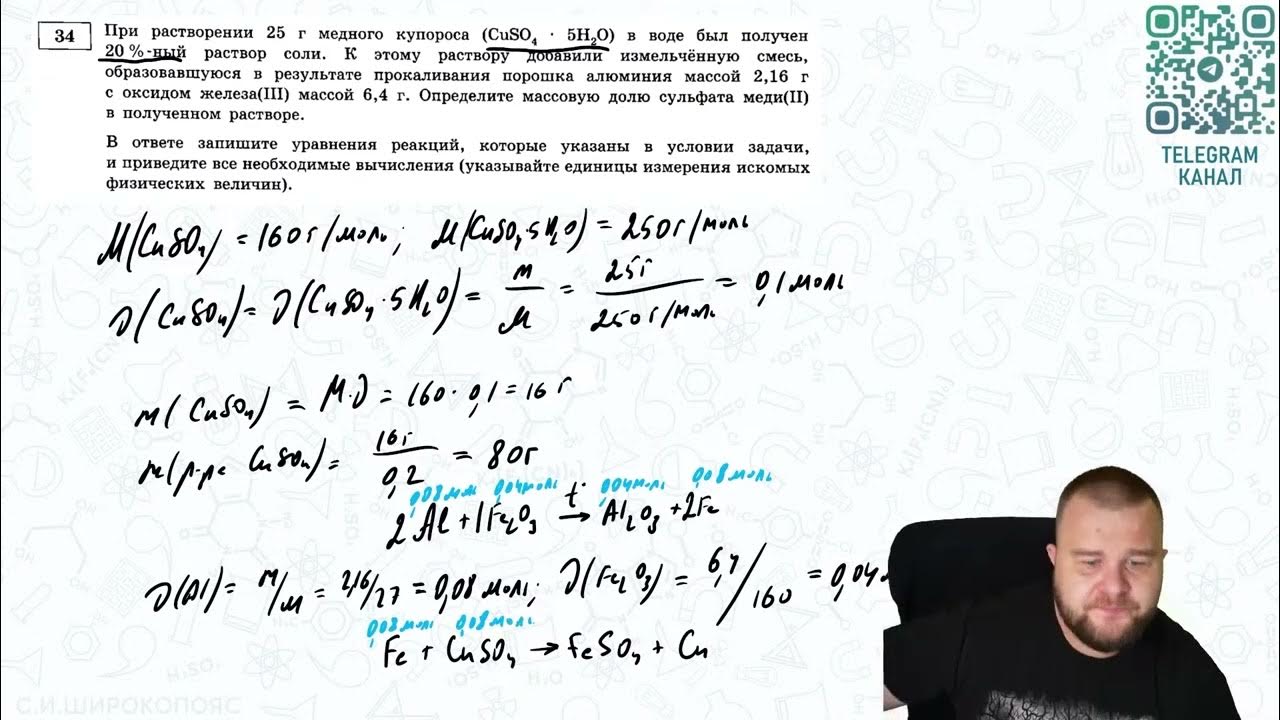 34
При растворении 25 г медного купороса (CuSO₄ · 5H₂O) в воде был получен
20 %-ный раствор соли. К этому раствору добавили измельчённую смесь,
образовавшуюся в результате прокаливания порошка алюминия массой 2,16 г
с оксидом железа(III) массой 6,4 г. Определите массовую долю сульфата меди(II)
в полученном растворе.
В ответе запишите уравнения реакций, которые указаны в условии задачи,
и приведите все необходимые вычисления (указывайте единицы измерения искомых
физических величин).
TELEGRAM
КАНАЛ
M(CuSO₄) = 160 г/моль; M(CuSO₄·5H₂O) = 250 г/моль
ν(CuSO₄) = ν(CuSO₄·5H₂O) = m/M = 25г/250 г/моль = 0,1 моль
m(CuSO₄) = M·ν = 160·0,1 = 16 г
m(р-ра CuSO₄) = 16г/0,2 = 80г
0,08 моль 0,04 моль 0,04 моль 0,08 моль
2Al + 1Fe₂O₃ t° → Al₂O₃ + 2Fe
ν(Al) = m/M = 2,16/27 = 0,08 моль; ν(Fe₂O₃) = 6,4/160 = 0,04
0,08 моль 0,08 моль
Fe + CuSO₄ → FeSO₄ + Cu
С.И.ШИРОКОПОЯС